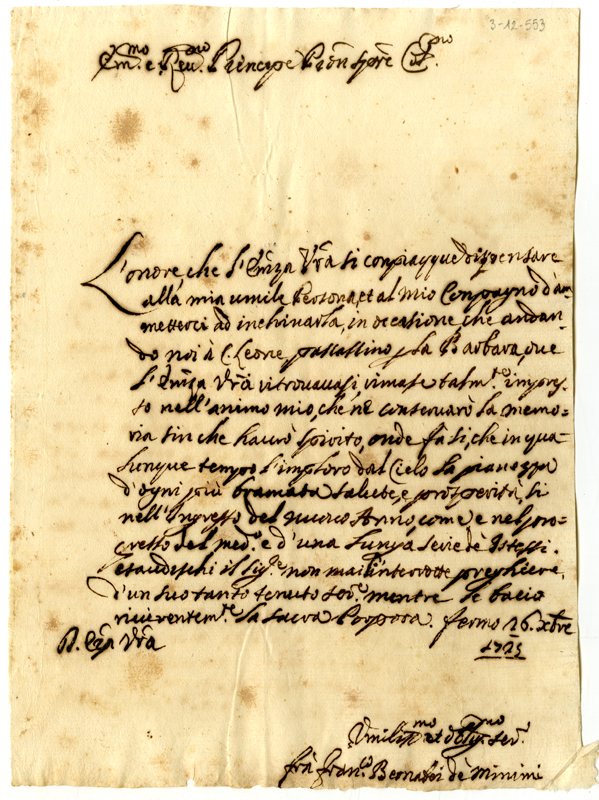 3-12-553
Em.mo e Rev.mo Principe Prōn Sprē Col.mo
L'onore, che l'Emza Vrā si compiacque dispensare
alla mia umile Persona, et al mio Compagno d'am
metterci ad inchinarla, in occasione, che andan-
do noi à C. Leone, passassimo p la Barbara, oue
l'Emza Vrā ritrouauasi, rimase talm.te impres-
so nell'animo mio, che ne conseruarò la memo=
ria sin che haurò spirito, onde fà sì, che in qua-
lunque tempo l'imploro dal Cielo la pienezza
d'ogni più bramata salute, e prosperità, sì
nell'Ingresso del nuouo Anno, come, e nel pro=
gresso del med.o e d'una lunga serie dè Istessi.
il Sig.e non mai interrotte preghiere,
d'un suo tanto tenuto ser.e mentre le bacio
riuerentem.te la sacra Porpora. fermo 26. Xbre
1725
D. Emza Vrā
Vmiliss.mo et Oblig.mo Ser.e
frà Fran.co Bernabei dè Minimi